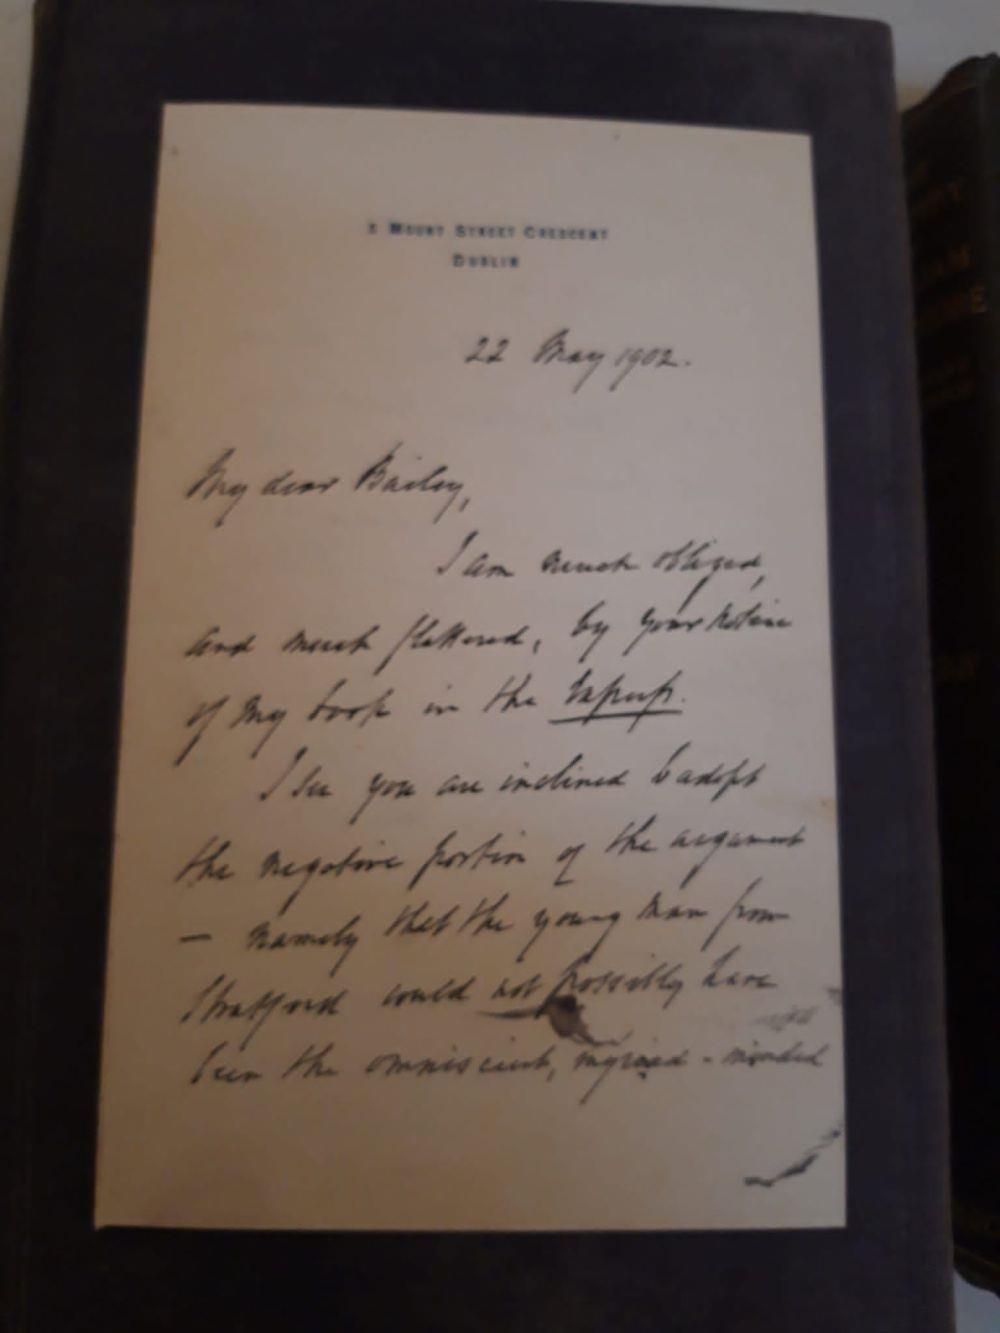 Mount Street Crescent
Dublin
22 May 1902.
My dear Bailey,
I am much obliged,
and much flattered, by your notice
of my book in the Express.
I see you are inclined to adopt
the negative portion of the argument
— namely that the young man from
Stratford could not possibly have
been the omniscient, myriad-minded